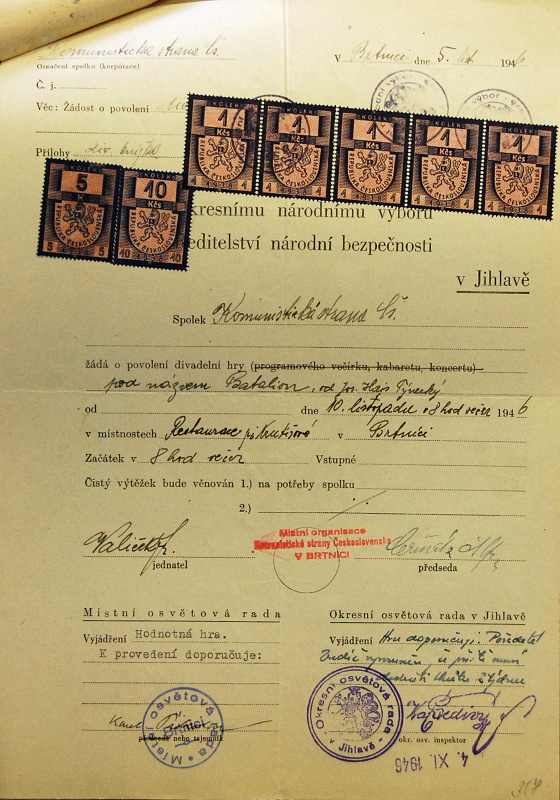 Komunistická strana Čs.
Označení spolku (korporace)
V Brtnici dne 5. list. 1946
Č. j.
Věc: Žádost o povolení
Přílohy div. knížka
KOLEK
1
Kčs
REPUBLIKA ČESKOSLOVENSKÁ
1938
KOLEK
1
Kčs
REPUBLIKA ČESKOSLOVENSKÁ
1938
KOLEK
1
Kčs
REPUBLIKA ČESKOSLOVENSKÁ
1938
KOLEK
1
Kčs
REPUBLIKA ČESKOSLOVENSKÁ
1938
KOLEK
1
Kčs
REPUBLIKA ČESKOSLOVENSKÁ
1938
KOLEK
5
REPUBLIKA ČESKOSLOVENSKÁ
5 1938 5
KOLEK
10
Kčs
REPUBLIKA ČESKOSLOVENSKÁ
10 1938 10
kresnímu národnímu výboru
editelství národní bezpečnosti
v Jihlavě
Spolek Komunistická strana Čs.
žádá o povolení divadelní hry (programového večírku, kabaretu, koncertu)
pod názvem Batalion, od Jos. Hais Týnecký
od dne 10. listopadu o 8 hod večer 1946
v místnostech Restaurace v Brtnici
Začátek v 8 hod večer Vstupné
Čistý výtěžek bude věnován 1.) na potřeby spolku
2.)
Místní organisace
Komunistické strany Československa
V BRTNICI
jednatel
předseda
Místní osvětová rada
Vyjádření Hodnotná hra.
K provedení doporučuje:
Místní osvětová rada
Brtnici
předseda nebo tajemník
Okresní osvětová rada v Jihlavě
Vyjádření Hru doporučuji. Pořadatel
Okresní osvětová rada
v Jihlavě
okr. osv. inspektor
4. XI. 1946